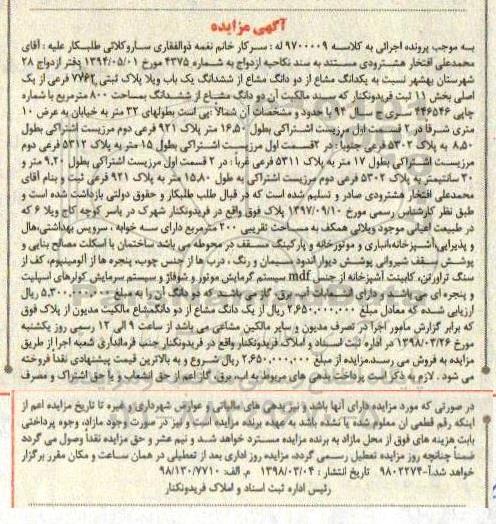 آگهی مزایده
به موجب پرونده اجرائی به کلاسه ۹۷۰۰۰۰۹ له : سرکار خانم نغمه ذوالفقاری ساروکلائی طلبکار علیه : آقای
محمدعلی افتخار هشترودی مستند به سند نکاحیه ازدواج به شماره ۴۳۷۵ مورخ ۱۳۹۴/۰۵/۰۱ دفتر ازدواج ۲۸
شهرستان بهشهر نسبت به یکدانگ مشاع از دو دانگ مشاع از ششدانگ یک باب ویلا پلاک ثبتی ۷۷۶۲ فرعی از یک
اصلی بخش ۱۱ ثبت فریدونکنار که سند مالکیت آن دو دانگ مشاع از ششدانگ بمساحت ۸۰۰ مترمربع با شماره
چاپی ۴۴۶۵۴۶ سری ج سال ۹۴ با حدود و مشخصات آن شمالاً :پی است بطولهای ۳۲ متر به خیابان به عرض ۱۰
متری شرقاً در ۲ قسمت اول مرزیست اشتراکی بطول ۱۶،۵۰ متر پلاک ۹۲۱ فرعی دوم مرزیست اشتراکی بطول
۸،۵۰ به پلاک ۵۳۰۲ فرعی جنوباً : در ۲قسمت اول مرزیست اشتراکی بطول ۱۵ متر به پلاک ۵۳۱۲ فرعی دوم
مرزیست اشتراکی بطول ۱۷ متر به پلاک ۵۳۱۱ فرعی غرباً : در ۲ قسمت اول مرزیست اشتراکی بطول ۹،۲۰ متر و
۲۰ سانتیمتر به پلاک ۵۳۰۲ فرعی دوم مرزیست اشتراکی به طول ۱۵،۸۰ متر به پلاک ۹۲۱ فرعی ثبت و بنام آقای
محمدعلی افتخار هشترودی صادر و تسلیم شده است که در قبال طلب طلبکار و حقوق دولتی بازداشت شده است و
طبق نظر کارشناس رسمی مورخ ۱۳۹۷/۰۹/۱۰ پلاک فوق واقع در فریدونکنار شهرک در یاسر کوچه کاج ویلا ۶ که
در طبیعت اعیانی موجود ویلائی همکف به مساحت تقریبی ۲۰۰ مترمربع دارای سه خوابه ، سرویس بهداشتی،هال
و پذیرایی،آشپزخانه،انباری و موتورخانه و پارکینگ مسقف در محوطه می باشد ساختمان با اسکلت مصالح بنایی و
پوشش سقف شیروانی پوشش دیوار اندود سیمان و رنگ ، درب ها از جنس چوب، پنجره ها از آلومینیوم، کف از
سنگ تراورتن، کابینت آشپزخانه از جنس mdf سیستم گرمایش موتور و شوفاژ و سیستم سرمایش کولرهای اسپلیت
و پنجره ای می باشد و دارای انشعابات آب، برق، گاز می باشد که دو دانگ آن را به مبلغ ۵،۳۰۰،۰۰۰،۰۰۰ ریال
ارزیابی شده که معادل مبلغ ۲،۶۵۰،۰۰۰،۰۰۰ ریال از یک دانگ مشاع از دو دانگمشاع مالکیت مدیون از پلاک فوق
که برابر گزارش مامور اجرا در تصرف مدیون و سایر مالکین مشاعی می باشد از ساعت ۹ الی ۱۲ رسمی روز یکشنبه
مورخ ۱۳۹۸/۰۳/۲۶ در اداره ثبت اسناد و املاک فریدونکنار واقع در فریدونکنار جنب فرمانداری شعبه اجرا از طریق
مزایده به فروش می رسد.مزایده از مبلغ ۲،۶۵۰،۰۰۰،۰۰۰ ریال شروع و به بالاترین قیمت پیشنهادی نقداً فروخته
می شود . لازم بذکر است پرداخت بدهی های مربوطه به آب، برق، گاز اعم از حق انشعاب و یا حق اشتراک و مصرف
در صورتی که مورد مزایده دارای آنها باشد و نیز بدهی های مالیاتی و عوارض شهرداری و غیره تا تاریخ مزایده اعم از
اینکه رقم قطعی آن معلوم شده یا نشده باشد به عهده برنده مزایده است و نیز در صورت وجود مازاد، وجوه پرداختی
بابت هزینه های فوق از محل مازاد به برنده مزایده مسترد خواهد شد و نیم عشر و حق مزایده نقداً وصول می گردد
ضمناً چنانچه روز مزایده تعطیل رسمی گردد، مزایده روز اداری بعد از تعطیلی در همان ساعت و مکان مقرر برگزار
خواهد شد.آ-۹۸۰۲۲۷۴ تاریخ انتشار : ۱۳۹۸/۰۳/۰۴ م. الف: ۹۸/۱۳۰/۷۷۱۰
رئیس اداره ثبت اسناد و املاک فریدونکنار